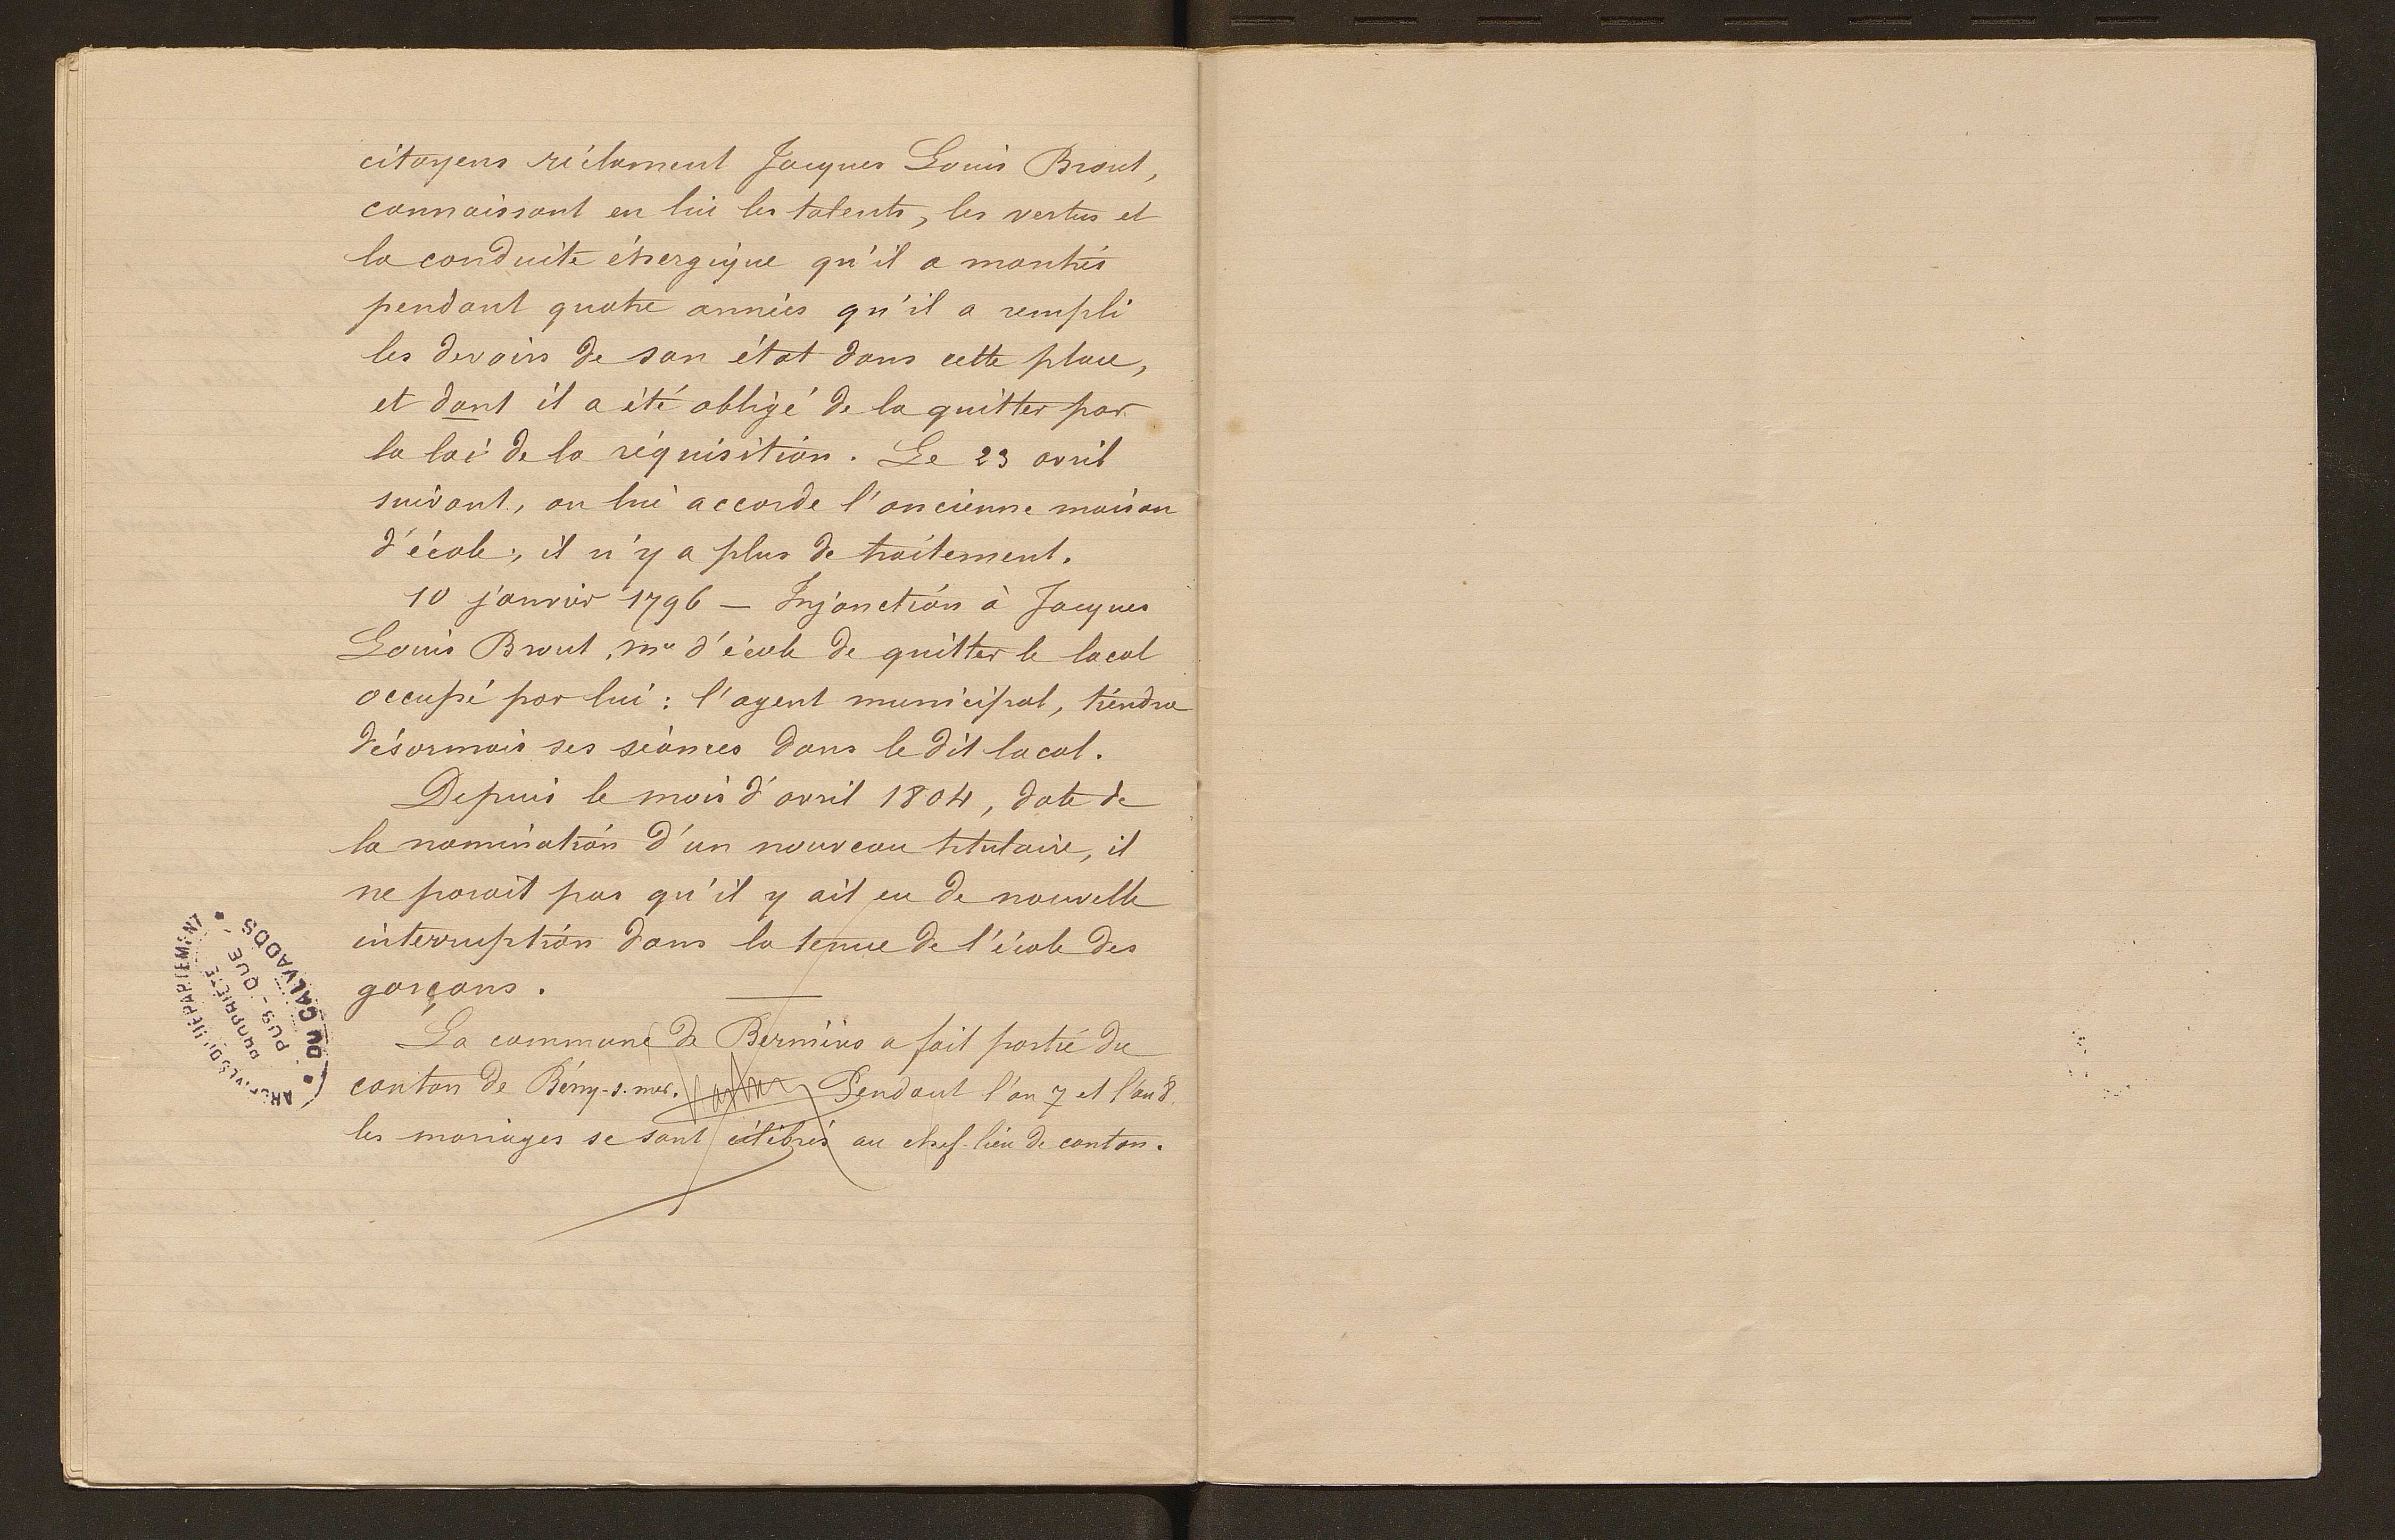 citoyens réclament Jacques Louis Brout,
connaissant en lui les talents, les vertus et
la conduite énergique qu'il a montrés
pendant quatre années qu'il a rempli
les devoirs de son état dans cette place,
et dont il a été obligé de la quitter par
la loi de la réquisition. Le 23 avril
suivant, on lui accorde l'ancienne maison
d'école; il n'y a plus de traitement.
10 janvier 1796 — Injonction à Jacques
Louis Brout, me d'école de quitter le local
occupé par lui: l'agent municipal, tiendra
désormais ses séances dans le dit local.
Depuis le mois d'avril 1804, date de
la nomination d'un nouveau titulaire, il
ne parait pas qu'il y ait eu de nouvelle
interruption dans la tenue de l'école des
garçons.
La commune de Bernières a fait partie du
canton de Bény-s.mer. Pendant l'an 7 et l'an 8
les mariages se sont célébrés au chef-lieu de canton.
ARCHIVES DÉPARTEMENTALES
DU CALVADOS
PROPRIÉTÉ
PUB-QUE